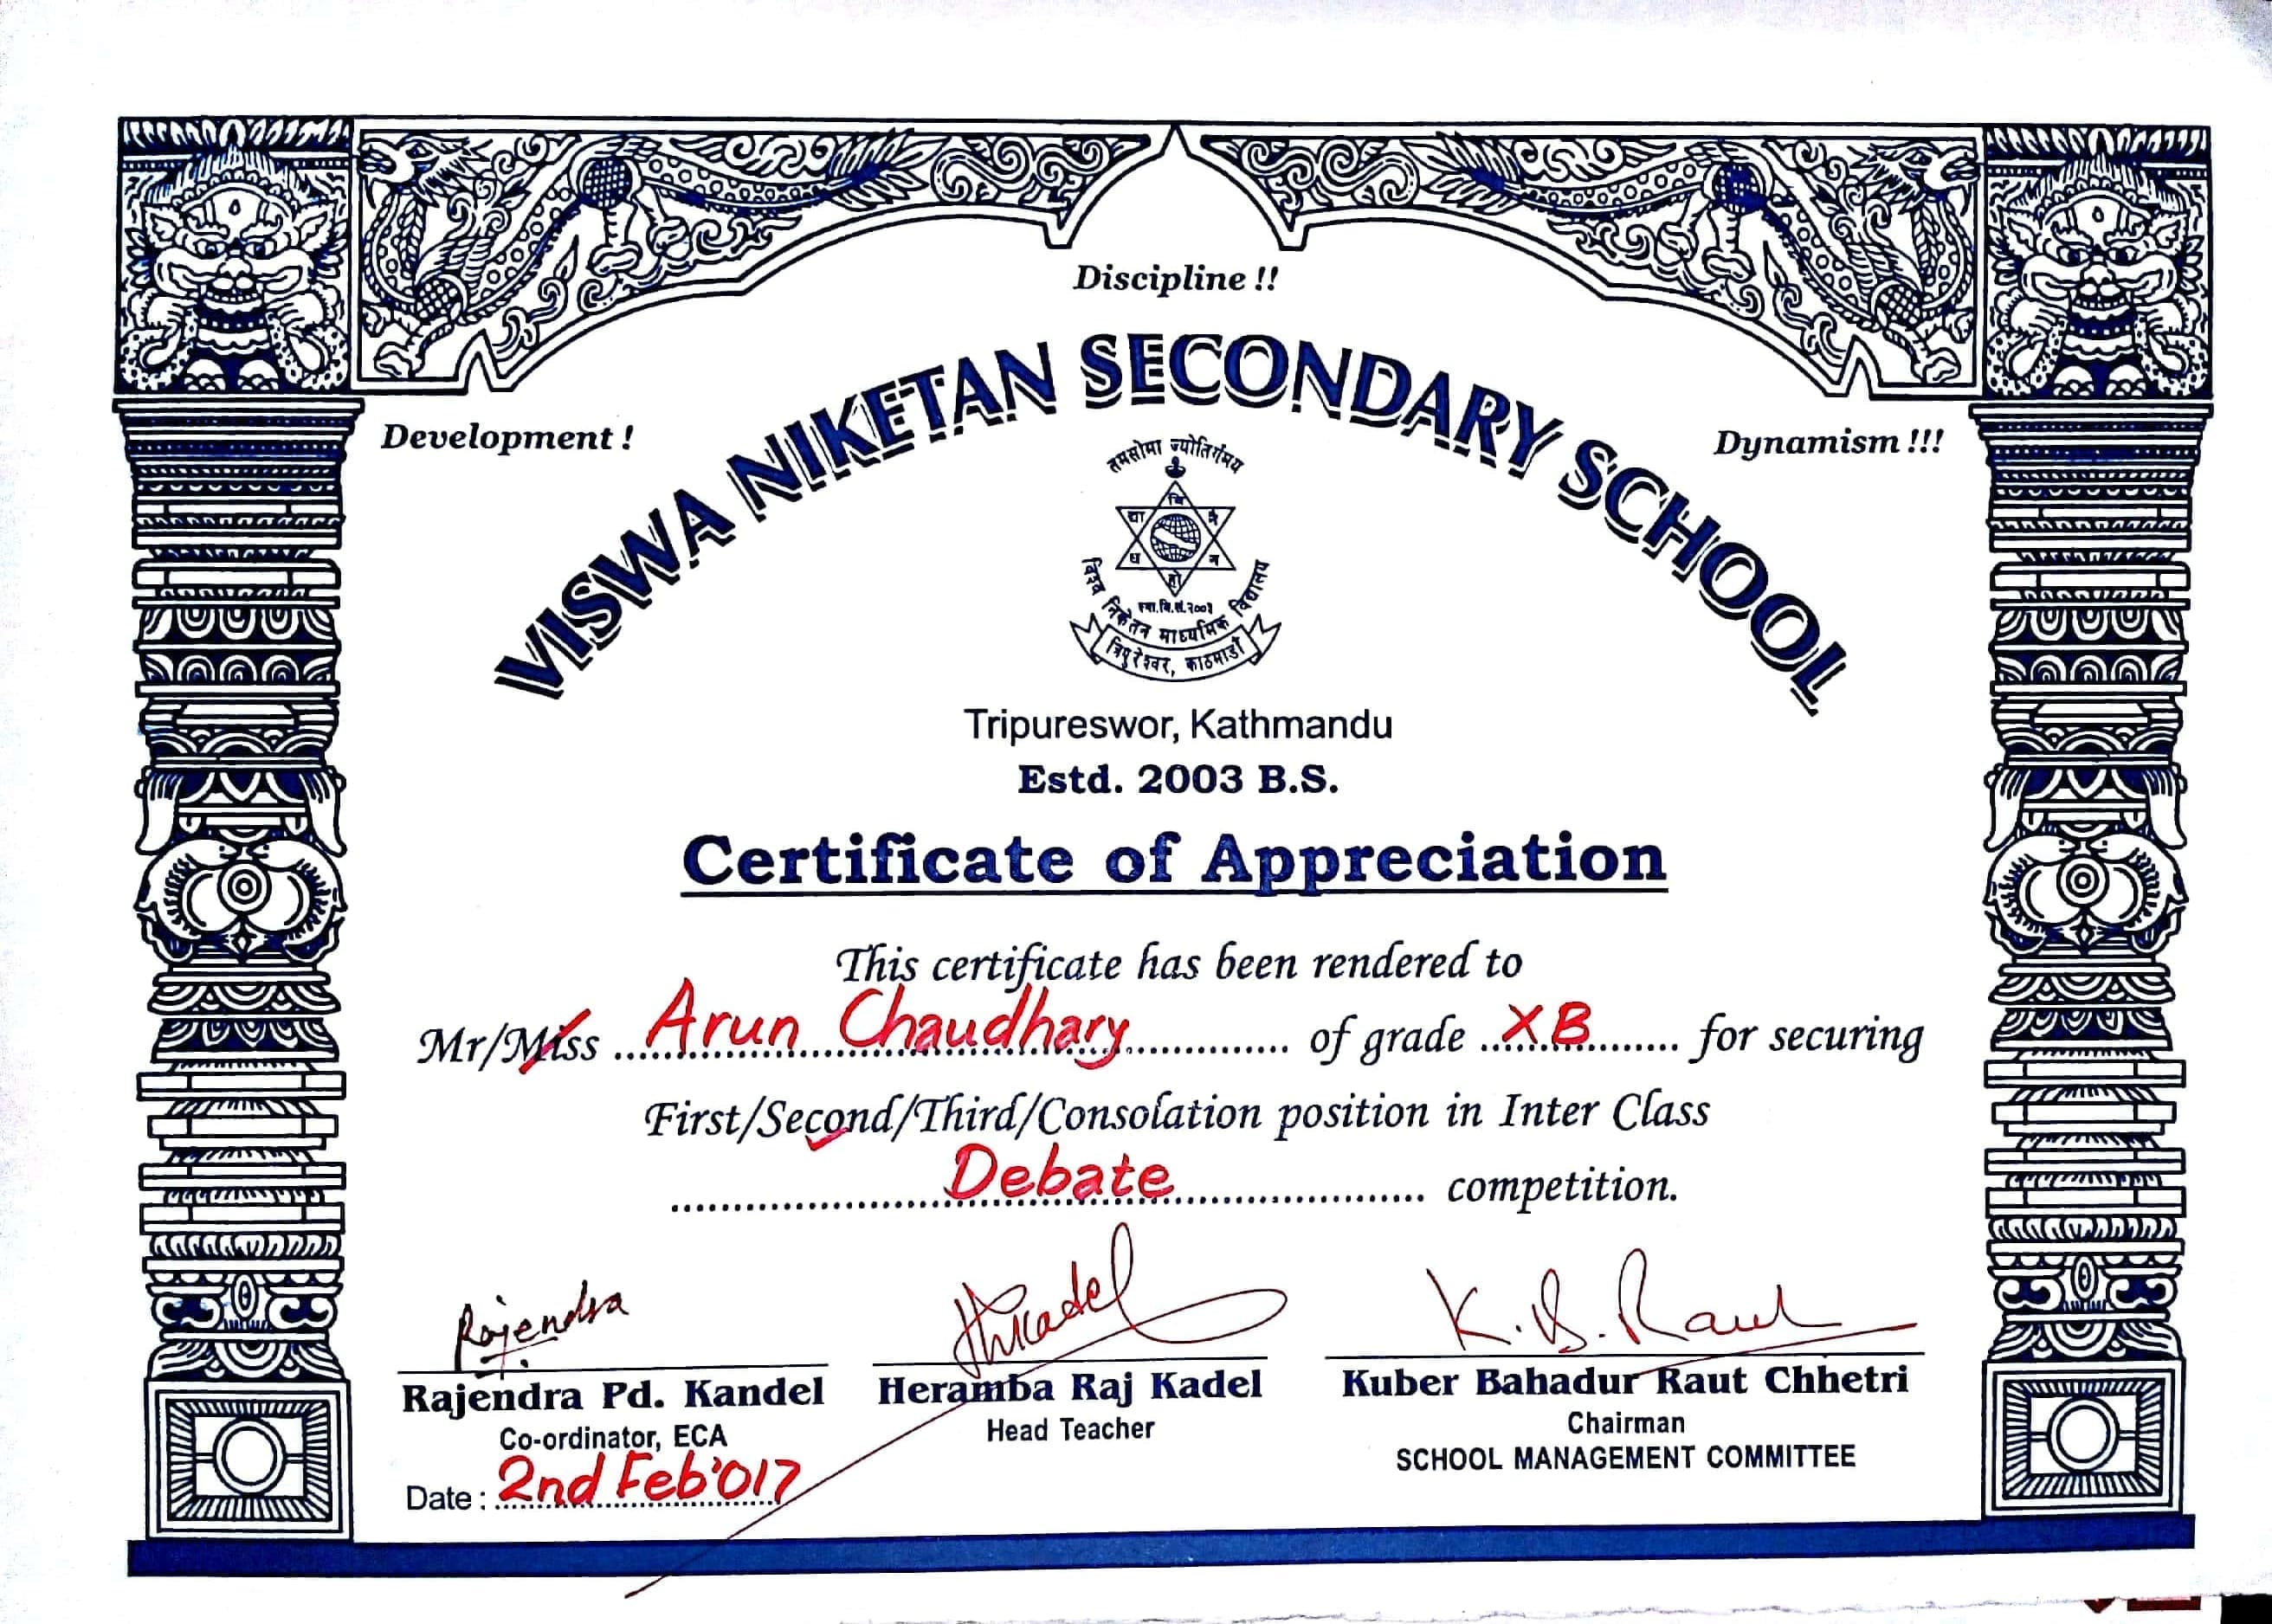 Discipline !!
Development !
Dynamism !!!
VISWA NIKETAN SECONDARY SCHOOL
तमसोमा ज्योतिर्गमय
वि
द्या
नै
ध
न
हो
स्था.वि.सं.२००३
विश्व निकेतन माध्यमिक विद्यालय
त्रिपुरेश्वर, काठमाडौं
Tripureswor, Kathmandu
Estd. 2003 B.S.
Certificate of Appreciation
This certificate has been rendered to
Mr/Miss Arun Chaudhary of grade XB for securing
First/Second/Third/Consolation position in Inter Class
Debate competition.
Rajendra
HRKadel
K.B. Raut
Rajendra Pd. Kandel
Heramba Raj Kadel
Kuber Bahadur Raut Chhetri
Co-ordinator, ECA
Head Teacher
Chairman
SCHOOL MANAGEMENT COMMITTEE
Date : 2nd Feb'017